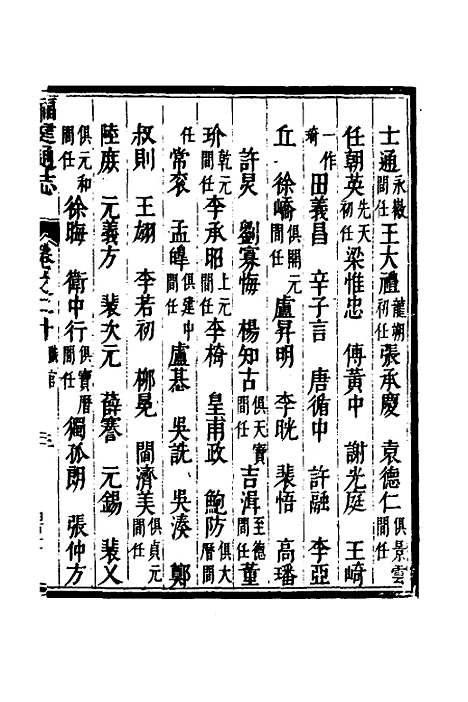 士通永徽間任王大禮龍朔初任張承慶　袁德仁俱景雲間任
任朝英先天初任梁惟忠　傅黃中　謝光庭　王崎
一作崎田義昌　辛子言　唐循中　許融　李亞
丘　徐嶠俱開元間任盧昇明　李晄　裴悟　高璠
許炅　劉寡悔　楊知古俱天寶間任吉湒至德間任董
玠乾元間任李承昭上元間任李椅　皇甫政　鮑防俱大曆間
任常袞　孟皥俱建中間任盧惎　吳詵　吳湊　鄭
叔則　王翃　李若初　柳冕　閻濟美俱貞元間任
陸庶　元義方　裴次元　薛謇　元錫　裴乂
俱元和間任徐晦　衛中行俱寶曆間任獨孤朗　張仲方
福建通志　卷之二十　職官　三